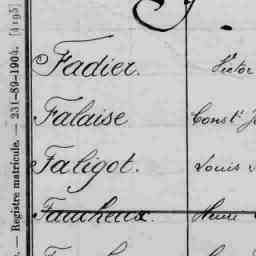 Registre matricule. — 231-89-1904. [4195]
Fadier. Victor
Falaise Const. J
Faligot. Louis
Faucheux. Henri